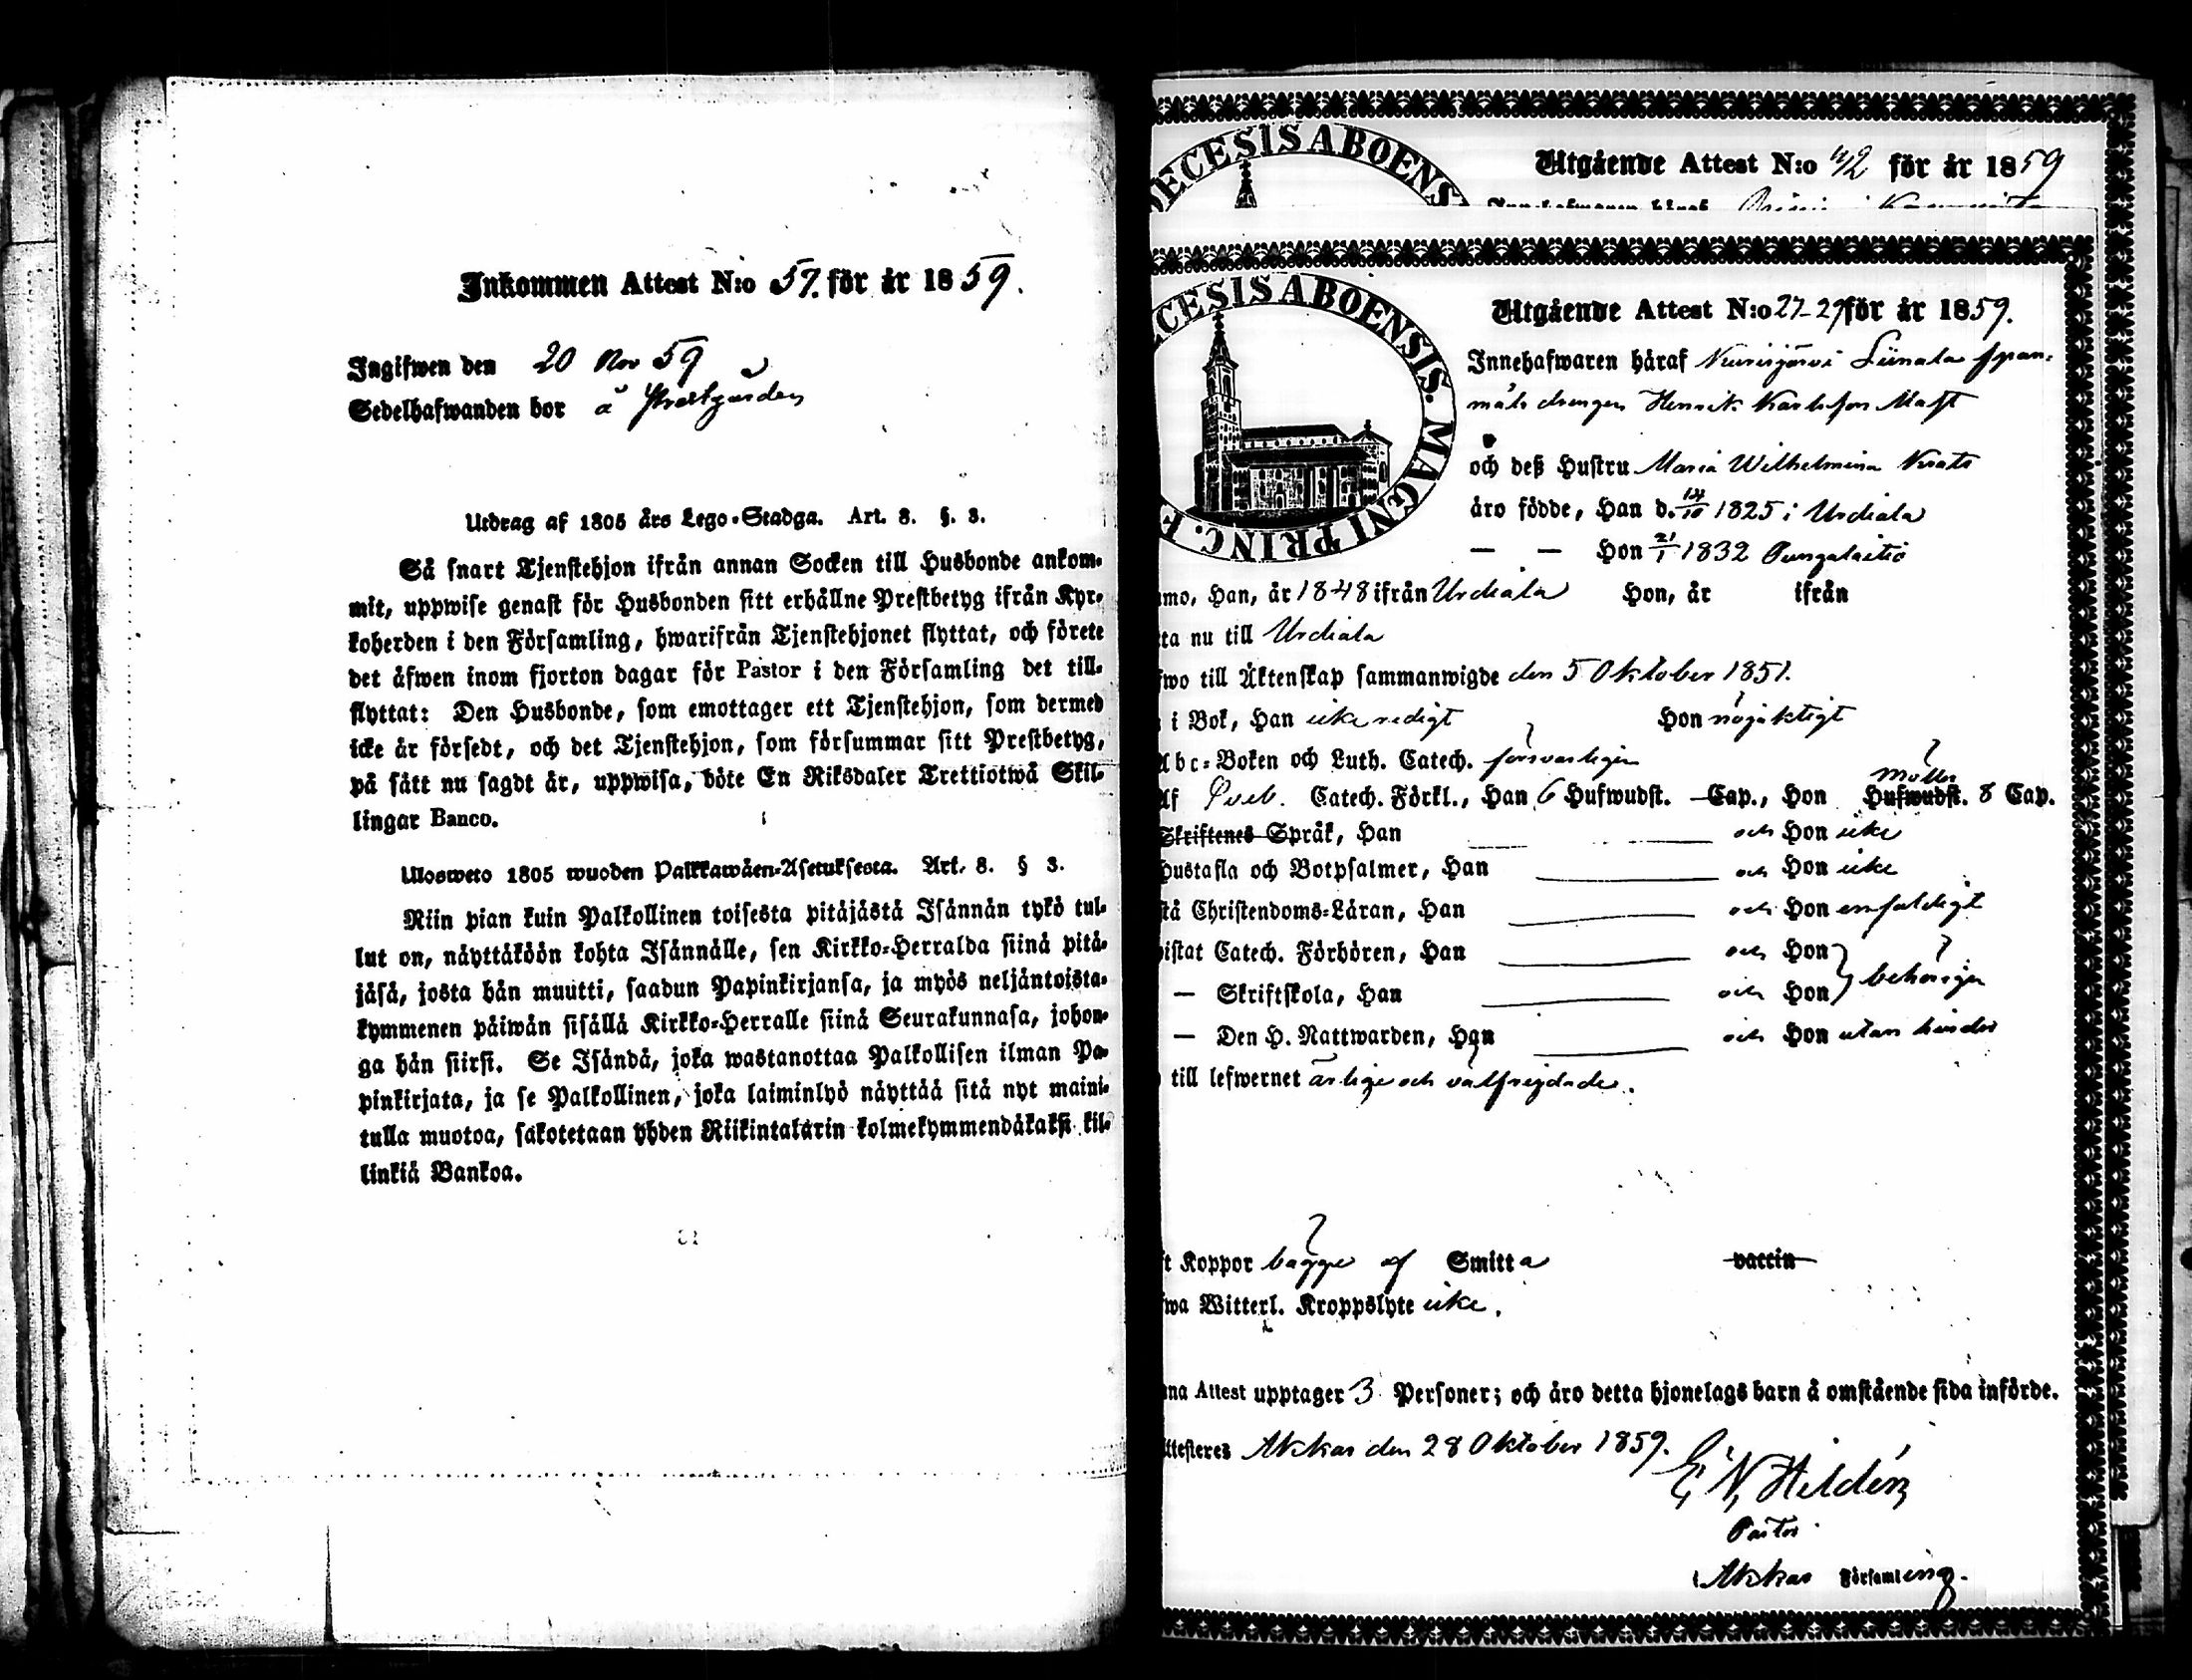 Inkommen Attest N:o 57. för år 1859.
Ingifwen den 20 Nov 59
Sedelhafwanden bor å Prestgården
Utdrag af 1805 års Lego-Stadga. Art. 8. §. 3.
Så snart Tjenstehjon ifrån annan Socken till Husbonde ankom-
mit, uppwise genast för Husbonden sitt erhållne Prestbetyg ifrån Kyr-
koherden i den Församling, hwarifrån Tjenstehjonet flyttat, och förete
det äfwen inom fjorton dagar för Pastor i den Församling det till-
flyttat: Den Husbonde, som emottager ett Tjenstehjon, som dermed
icke är försedt, och det Tjenstehjon, som försummar sitt Prestbetyg,
på sätt nu sagdt är, uppwisa, böte En Riksdaler Trettiotwå Skil-
lingar Banco.
Ulosweto 1805 wuoden Palkkawäen-Asetuksesta. Art. 8. § 3.
Niin pian kuin Palkollinen toisesta pitäjästä Isännän tykö tul-
lut on, näyttäköön kohta Isännälle, sen Kirkko-Herralda siinä pitä-
jäsä, josta hän muutti, saadun Papinkirjansa, ja myös neljäntoista-
kymmenen päiwän sisällä Kirkko-Herralle siinä Seurakunnasa, johon-
ga hän siirsi. Se Isändä, joka wastanottaa Palkollisen ilman Pa-
pinkirjata, ja se Palkollinen, joka laiminlyö näyttää sitä nyt maini-
tulla muotoa, sakotetaan yhden Riikintalarin kolmekymmendäkaksi kil-
linkiä Bankoa.
DECESIS ABOENS
Utgående Attest N:o 42 för år 1859
CESIS ABOENSIS. MAGNI PRINC. F
Utgående Attest N:o 27-29 för år 1859.
Innehafwaren häraf Nuisijärvi Liinala span-
måls drengen Henrik Karlsson Mast
och deß Hustru Maria Wilhelmina
äro födde, Han d. 14/10 1825 i Urdiala
— — Hon 21/1 1832 Pungalaitio
mo, Han, år 1848 ifrån Urdiala Hon, år ifrån
ta nu till Urdiala
wo till Äktenskap sammanwigde den 5 Oktober 1851.
i Bok, Han icke redigt Hon nöjaktigt
Abc-Boken och Luth. Catech. försvarligen
Af Sveb. Catech. Förkl., Han 6 Hufwudst. Cap., Hon Hufwudst. 8 Cap.
Skriftenes Språk, Han och Hon icke
Hustafla och Botpsalmer, Han och Hon icke
stå Christendoms-Läran, Han och Hon enfaldigt
istat Catech. Förhören, Han och Hon
— Skriftskola, Han och Hon behörigen
— Den H. Nattwarden, Han och Hon utan hinder
till lefwernet ärlige och välfrejdade.
t Koppor bägge af Smitta vaccin
wa Witterl. Kroppslyte icke.
na Attest upptager 3 Personer; och äro detta hjonelags barn å omstående sida införde.
ttesteres Akkas den 28 Oktober 1859.
E N Heldén
Pastor
i Akkas Församling.